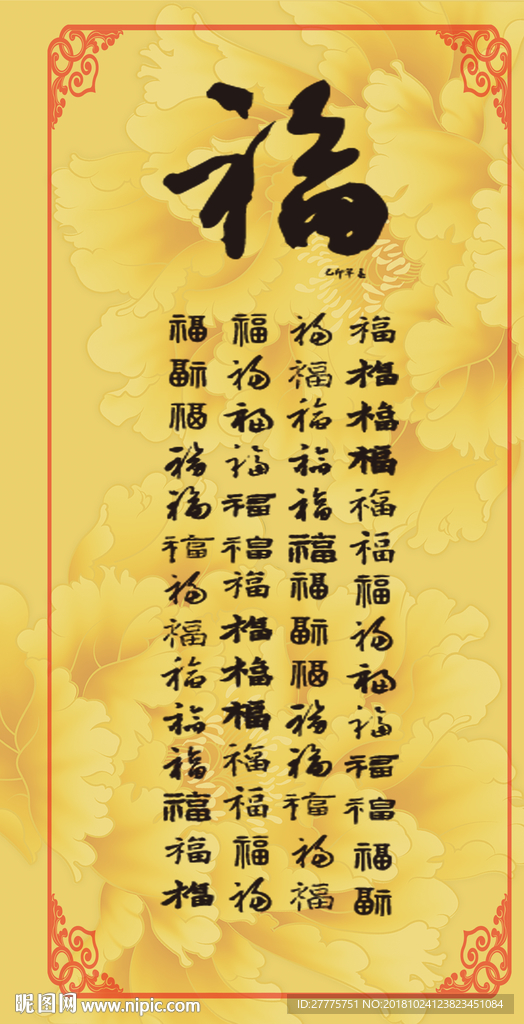 福
己卯年春
福福福福
福福福福
福福福福
福福福福
福福福福
福福福福
福福福福
福福福福
福福福福
福福福福
福福福福
福福福福
福福福福
福福福福
昵图网 www.nipic.com
ID:27775751 NO:20181024123823451084